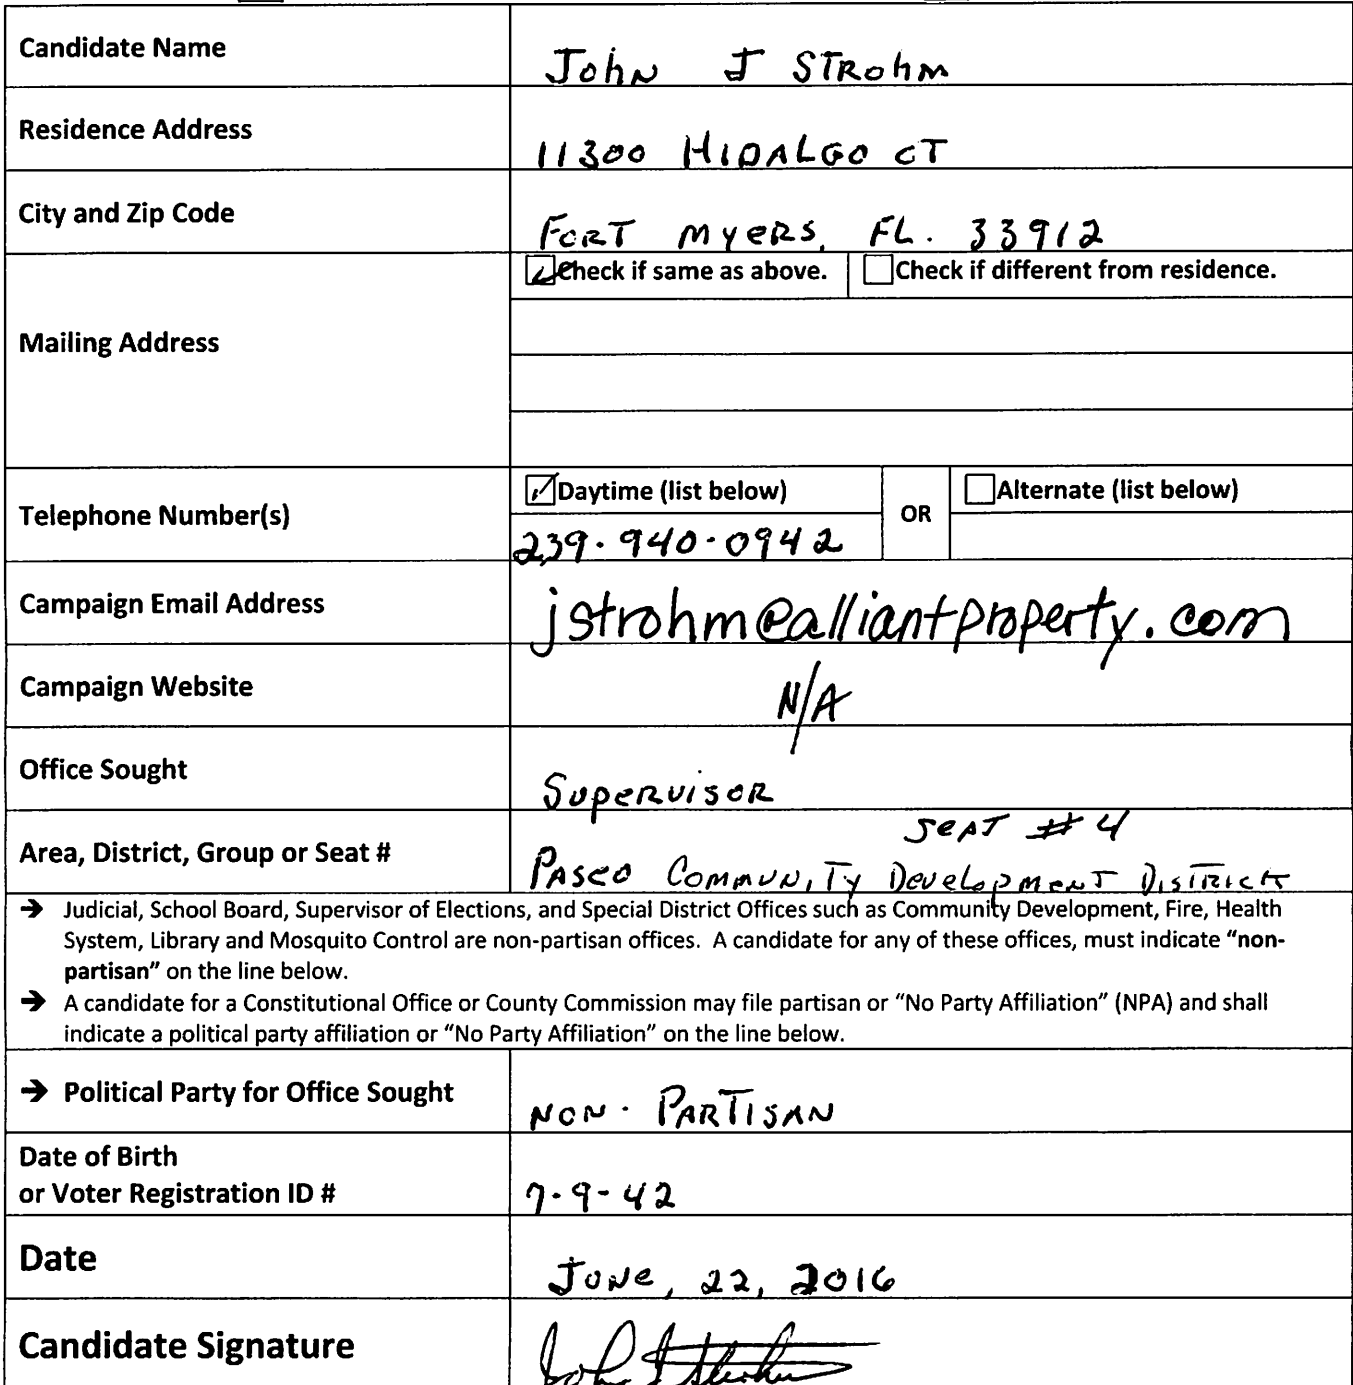 Candidate Name
John J STRohm
Residence Address
11300 HIDALGO CT
City and Zip Code
FORT MYERS, FL. 33912
Check if same as above. Check if different from residence.
Mailing Address
Telephone Number(s)
Daytime (list below) OR Alternate (list below)
239.940.0942
Campaign Email Address
jstrohm@alliantproperty.com
Campaign Website
N/A
Office Sought
SupeRvisoR
Area, District, Group or Seat #
SeAT #4
PASEO COMMUNITY DevelopmeNT DISTRICT
→ Judicial, School Board, Supervisor of Elections, and Special District Offices such as Community Development, Fire, Health
System, Library and Mosquito Control are non-partisan offices. A candidate for any of these offices, must indicate "non-
partisan" on the line below.
→ A candidate for a Constitutional Office or County Commission may file partisan or "No Party Affiliation" (NPA) and shall
indicate a political party affiliation or "No Party Affiliation" on the line below.
→ Political Party for Office Sought
NON-PARTISAN
Date of Birth
or Voter Registration ID #
7-9-42
Date
JUNe, 22, 2016
Candidate Signature
John J Strohm